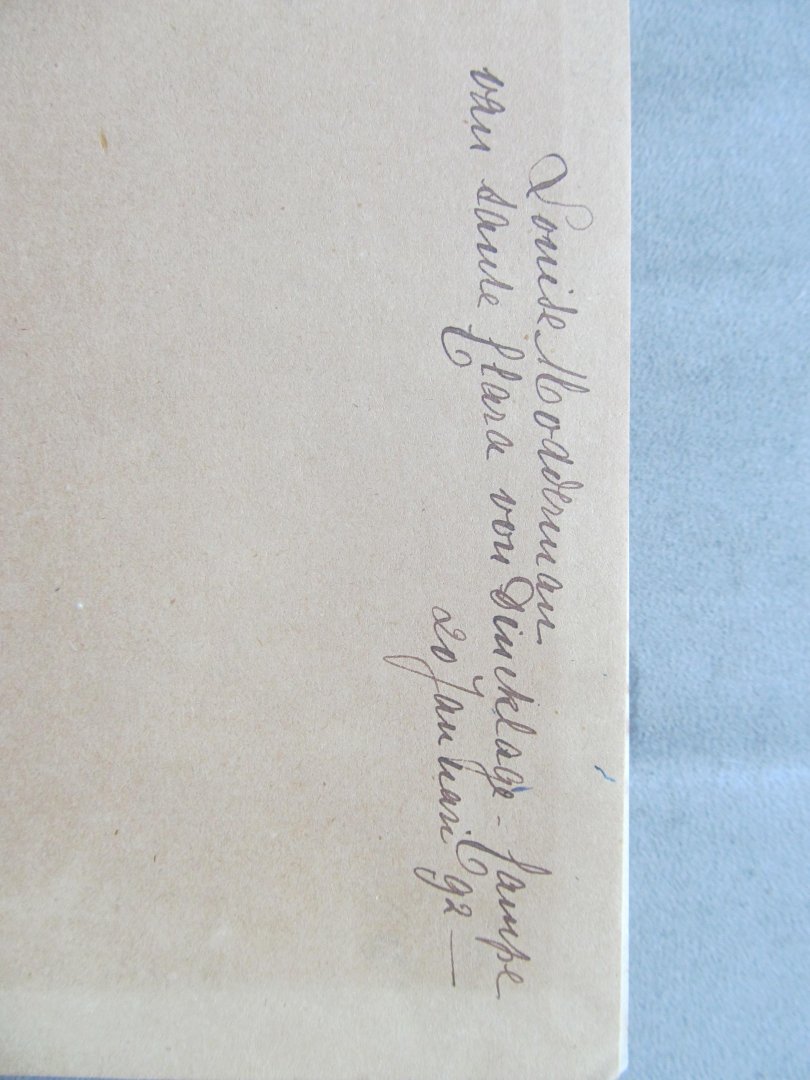 Louise Modderman
van tante Clara von Dincklage-Campe
20 Januari 92 —